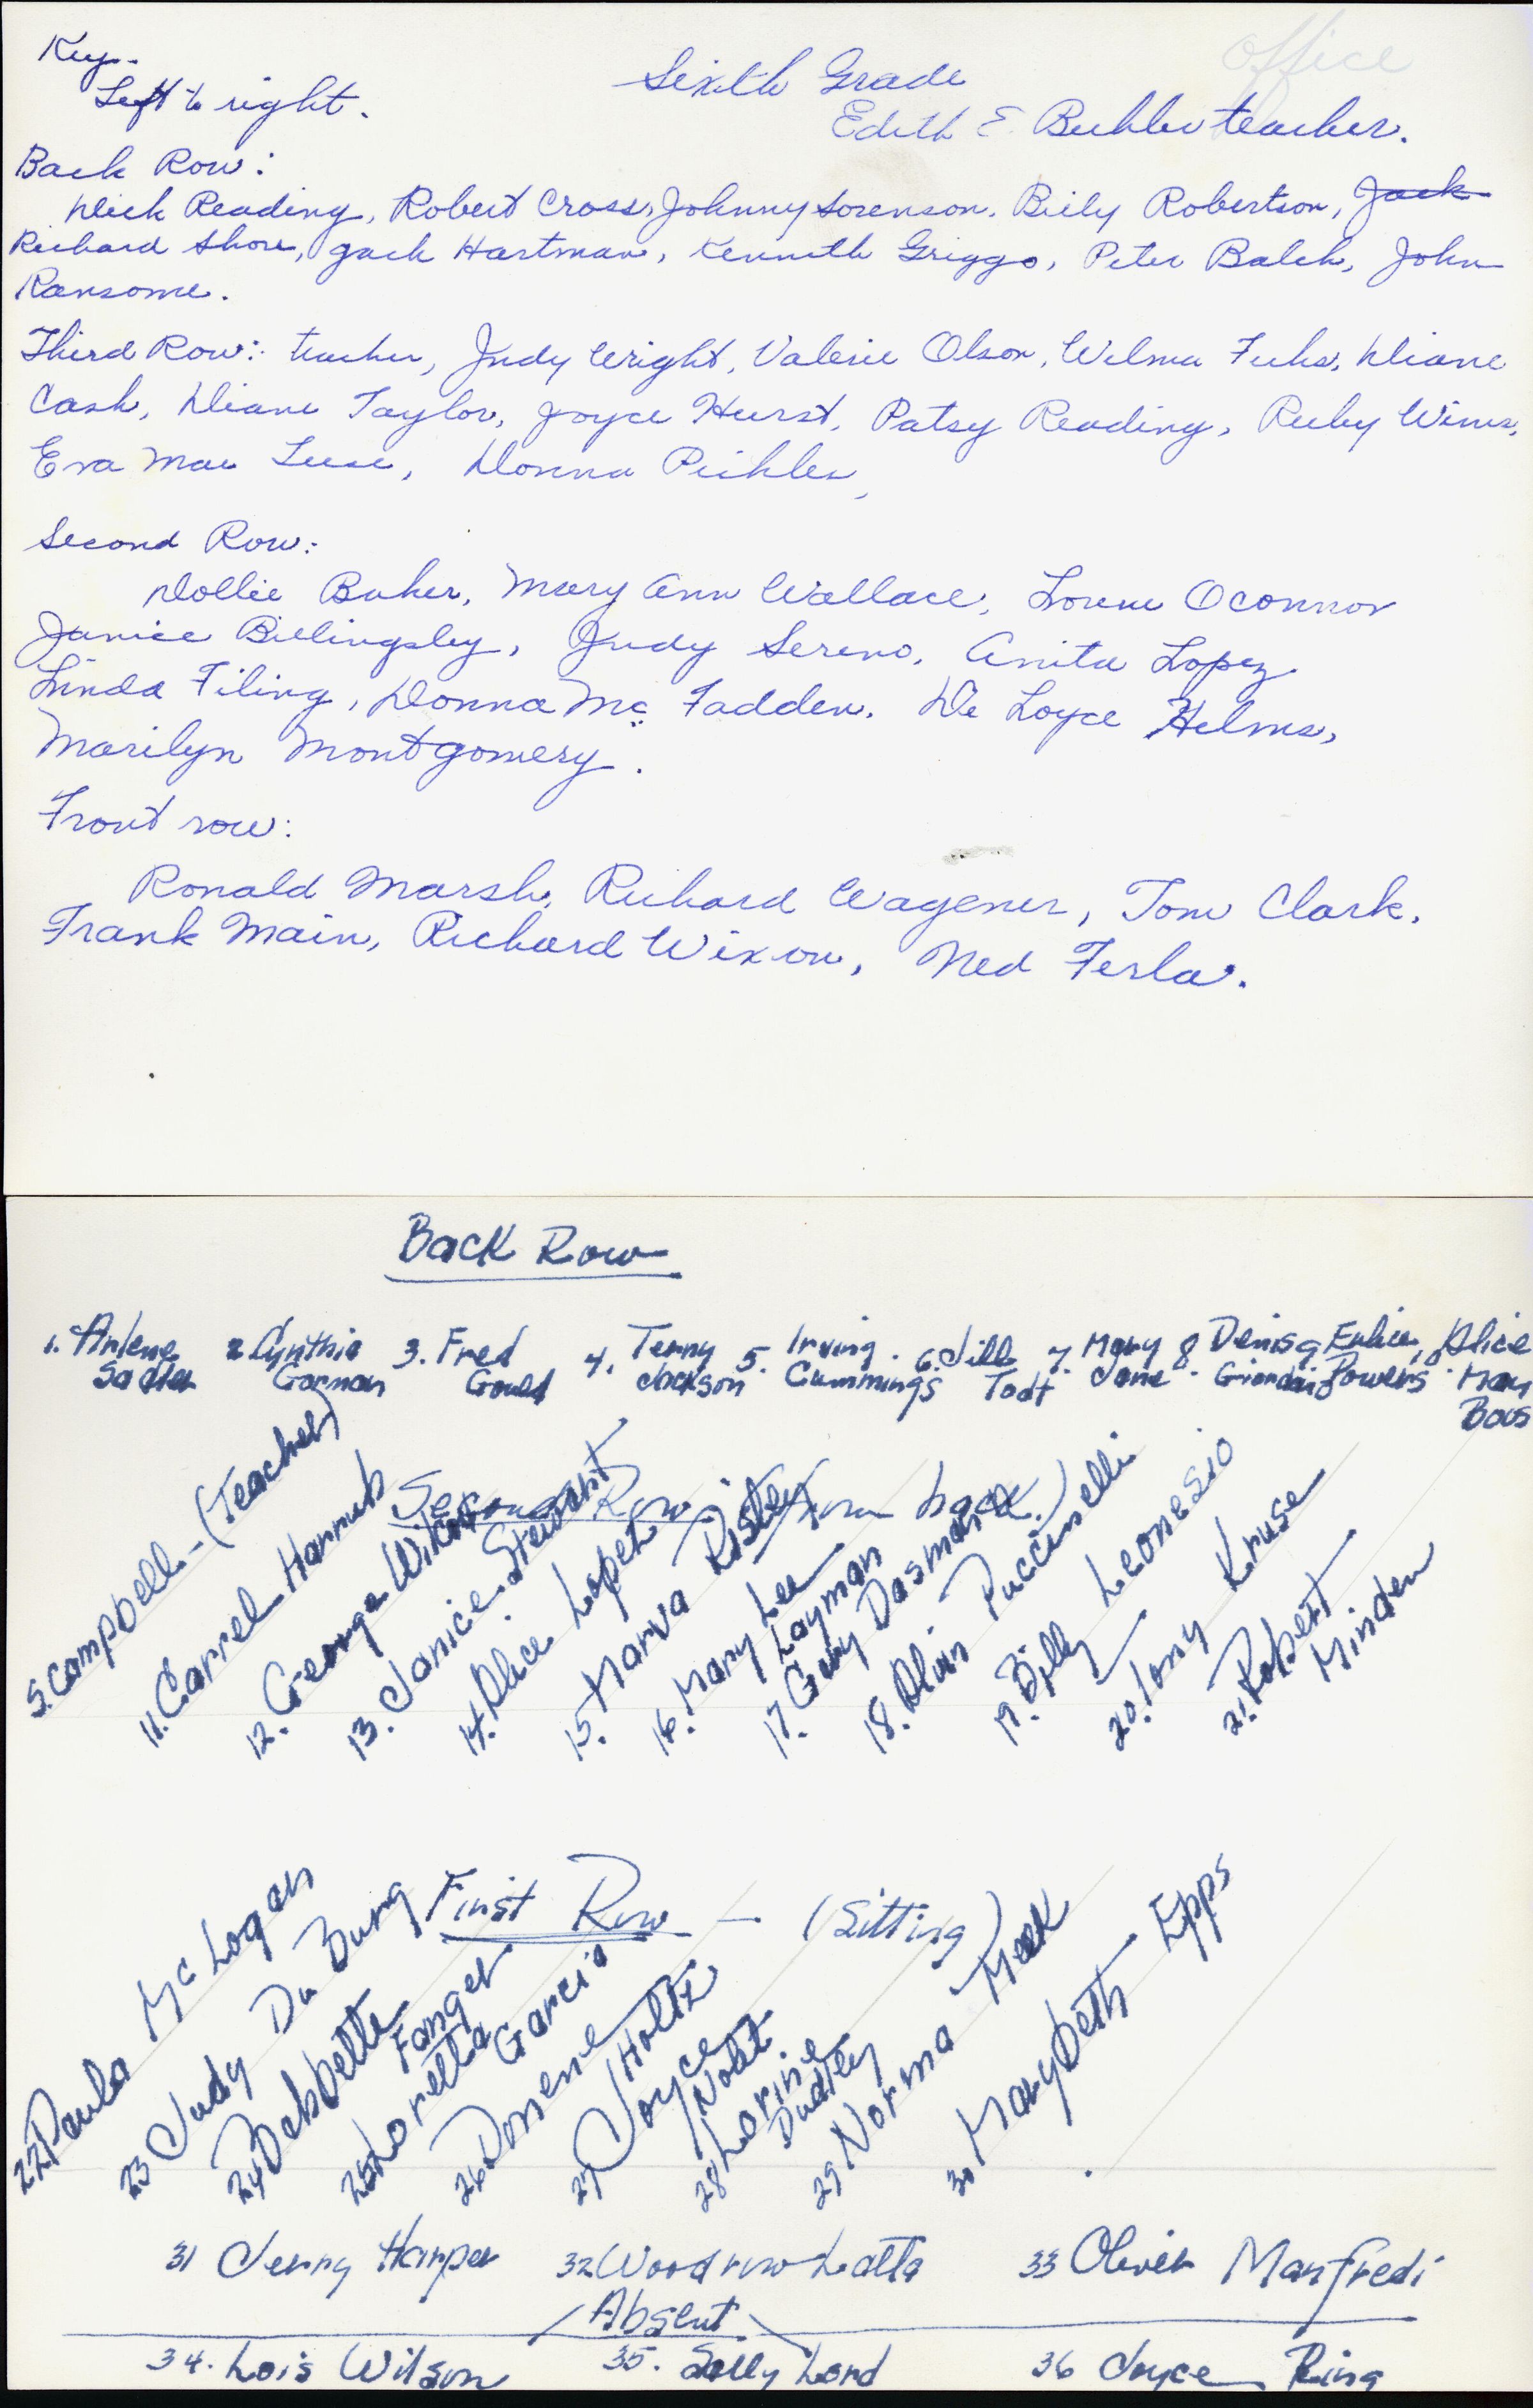 office
Key-
Left to right.
Sixth Grade
Edith E. Buhler teacher.
Back Row:
Dick Reading, Robert Cross, Johnny Sorenson, Billy Robertson, Jack
Richard Shore, Jack Hartman, Kenneth Griggs, Peter Balch, John
Ransome.
Third Row: teacher, Judy Wright, Valerie Olson, Wilma Fuhs, Diane
Cash, Diane Taylor, Joyce Hurst, Patsy Reading, Ruby Wims,
Eva Mae Luse, Donna Pickler,
Second Row:
Dollie Baker, Mary Ann Wallace, Oconnor
Janice Billingsley, Judy Sereno, Anita Lopez
Linda Filing, Donna Mc Fadden, De Loyce Helms,
Marilyn Montgomery.
Front row:
Ronald Marsh, Richard Wagener, Tom Clark,
Frank Main, Richard Wixon, Ned Ferla.
Back Row
1. Arlene Sadler 2. Cynthia Gorman 3. Fred Gould 4. Terry Jackson 5. Irving Cummings 6. Jill Todt 7. Mary Jane 8 Denis 9. Powers 10. Alice May
Second Row from back)
S. Campbell - (Teacher)
11. Carrel Hannub
12. George Wilcox
13. Janice Stewart
14. Alice Lopez
15. Marva Risley
16. Mary Lee Layman
17. Gary Dasman
18. Alvin Puccinelli
19. Billy Leonesio
20. Tony Kruse
21. Robert Minden
First Row - (Sitting)
22 Paula McLogan
23 Judy Du Burg
24 Debbette Fanger
25 Loretta Garcia
26 Donene Holtz
27 Joyce Nolt
28 Lorine Dudley
29 Norma Meek
30 Marybeth Epps
31 Jerry Harper 32 Woodrow Latta 33 Oliver Manfredi
Absent
34. Lois Wilson 35. Sally Lord 36 Joyce Ring